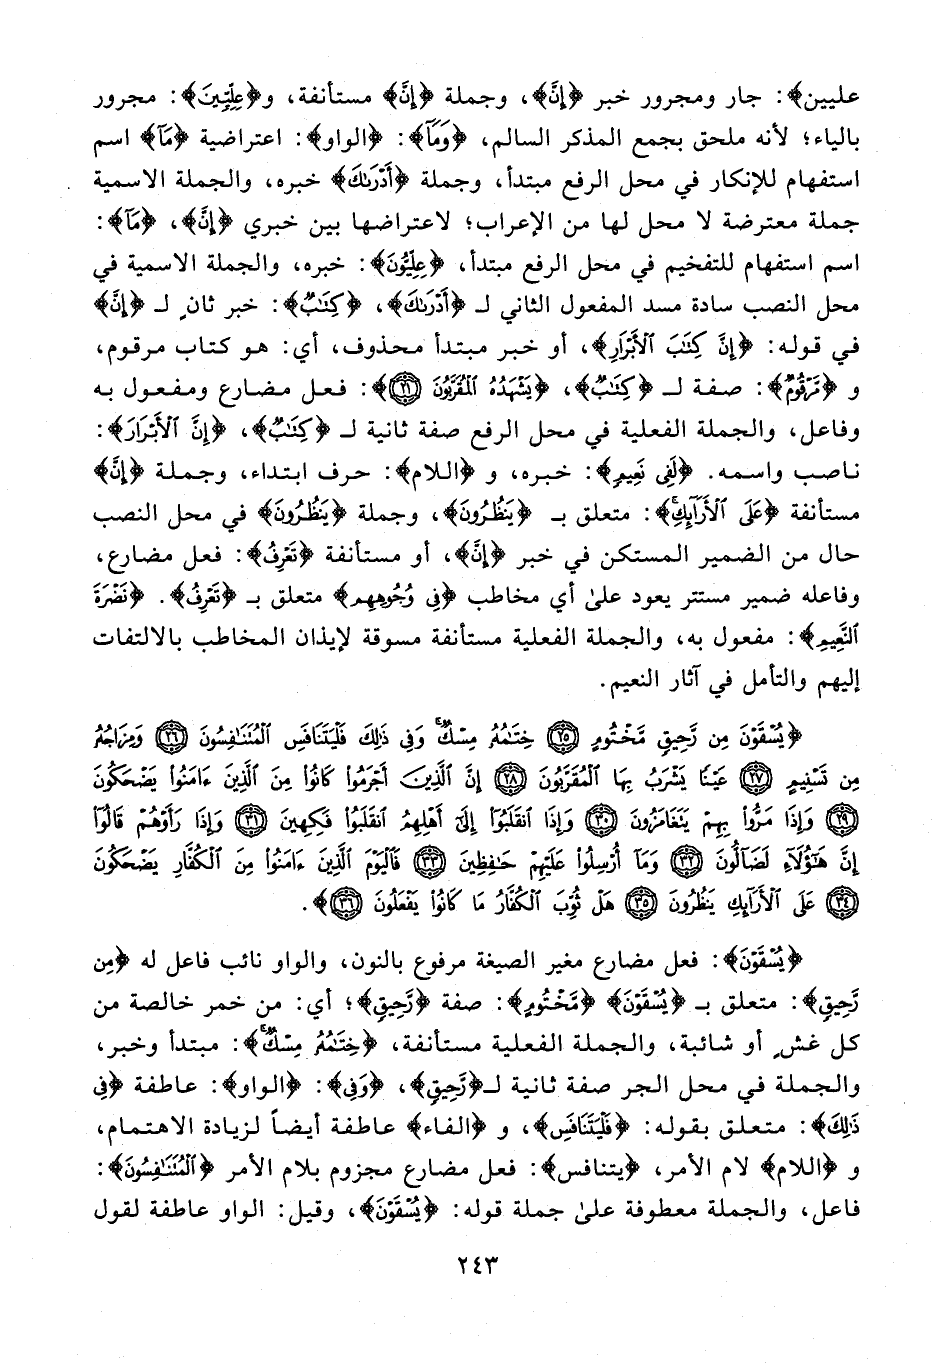 عليين﴾: جار ومجرور خبر ﴿إِنَّ﴾، وجملة ﴿إِنَّ﴾ مستأنفة، و﴿عِلِّيِّينَ﴾: مجرور
بالياء؛ لأنه ملحق بجمع المذكر السالم، ﴿وَمَآ﴾: ﴿الواو﴾: اعتراضية ﴿مَآ﴾ اسم
استفهام للإنكار في محل الرفع مبتدأ، وجملة ﴿أَدْرَىٰكَ﴾ خبره، والجملة الاسمية
جملة معترضة لا محل لها من الإعراب؛ لاعتراضها بين خبري ﴿إِنَّ﴾، ﴿مَآ﴾:
اسم استفهام للتفخيم في محل الرفع مبتدأ، ﴿عِلِّيُّونَ﴾: خبره، والجملة الاسمية في
محل النصب سادة مسد المفعول الثاني لـ ﴿أَدْرَىٰكَ﴾، ﴿كِتَٰبٌ﴾: خبر ثانٍ لـ ﴿إِنَّ﴾
في قوله: ﴿إِنَّ كِتَٰبَ ٱلْأَبْرَارِ﴾، أو خبر مبتدأ محذوف، أي: هو كتاب مرقوم،
و ﴿مَّرْقُومٌ﴾: صفة لـ ﴿كِتَٰبٌ﴾، ﴿يَشْهَدُهُ ٱلْمُقَرَّبُونَ ﴿٢١﴾﴾: فعل مضارع ومفعول به
وفاعل، والجملة الفعلية في محل الرفع صفة ثانية لـ ﴿كِتَٰبٌ﴾، ﴿إِنَّ ٱلْأَبْرَارَ﴾:
ناصب واسمه. ﴿لَفِى نَعِيمٍ﴾: خبره، و ﴿اللام﴾: حرف ابتداء، وجملة ﴿إِنَّ﴾
مستأنفة ﴿عَلَى ٱلْأَرَآئِكِ﴾: متعلق بـ ﴿يَنظُرُونَ﴾، وجملة ﴿يَنظُرُونَ﴾ في محل النصب
حال من الضمير المستكن في خبر ﴿إِنَّ﴾، أو مستأنفة ﴿تَعْرِفُ﴾: فعل مضارع،
وفاعله ضمير مستتر يعود علىٰ أي مخاطب ﴿فِى وُجُوهِهِمْ﴾ متعلق بـ ﴿تَعْرِفُ﴾. ﴿نَضْرَةَ
ٱلنَّعِيمِ﴾: مفعول به، والجملة الفعلية مستأنفة مسوقة لإيذان المخاطب بالالتفات
إليهم والتأمل في آثار النعيم.
﴿يُسْقَوْنَ مِن رَّحِيقٍ مَّخْتُومٍ ﴿٢٥﴾ خِتَٰمُهُۥ مِسْكٌ ۚ وَفِى ذَٰلِكَ فَلْيَتَنَافَسِ ٱلْمُتَنَٰفِسُونَ ﴿٢٦﴾ وَمِزَاجُهُۥ
مِن تَسْنِيمٍ ﴿٢٧﴾ عَيْنًا يَشْرَبُ بِهَا ٱلْمُقَرَّبُونَ ﴿٢٨﴾ إِنَّ ٱلَّذِينَ أَجْرَمُوا۟ كَانُوا۟ مِنَ ٱلَّذِينَ ءَامَنُوا۟ يَضْحَكُونَ
﴿٢٩﴾ وَإِذَا مَرُّوا۟ بِهِمْ يَتَغَامَزُونَ ﴿٣٠﴾ وَإِذَا ٱنقَلَبُوٓا۟ إِلَىٰٓ أَهْلِهِمُ ٱنقَلَبُوا۟ فَكِهِينَ ﴿٣١﴾ وَإِذَا رَأَوْهُمْ قَالُوٓا۟
إِنَّ هَٰٓؤُلَآءِ لَضَآلُّونَ ﴿٣٢﴾ وَمَآ أُرْسِلُوا۟ عَلَيْهِمْ حَٰفِظِينَ ﴿٣٣﴾ فَٱلْيَوْمَ ٱلَّذِينَ ءَامَنُوا۟ مِنَ ٱلْكُفَّارِ يَضْحَكُونَ
﴿٣٤﴾ عَلَى ٱلْأَرَآئِكِ يَنظُرُونَ ﴿٣٥﴾ هَلْ ثُوِّبَ ٱلْكُفَّارُ مَا كَانُوا۟ يَفْعَلُونَ ﴿٣٦﴾﴾.
﴿يُسْقَوْنَ﴾: فعل مضارع مغير الصيغة مرفوع بالنون، والواو نائب فاعل له ﴿مِن
رَّحِيقٍ﴾: متعلق بـ ﴿يُسْقَوْنَ﴾ ﴿مَّخْتُومٍ﴾: صفة ﴿رَّحِيقٍ﴾؛ أي: من خمر خالصة من
كل غش أو شائبة، والجملة الفعلية مستأنفة، ﴿خِتَٰمُهُۥ مِسْكٌ ۚ﴾: مبتدأ وخبر،
والجملة في محل الجر صفة ثانية لـ﴿رَّحِيقٍ﴾، ﴿وَفِى﴾: ﴿الواو﴾: عاطفة ﴿فِى
ذَٰلِكَ﴾: متعلق بقوله: ﴿فَلْيَتَنَافَسِ﴾، و ﴿الفاء﴾ عاطفة أيضاً لزيادة الاهتمام،
و ﴿اللام﴾ لام الأمر، ﴿يتنافس﴾: فعل مضارع مجزوم بلام الأمر ﴿ٱلْمُتَنَٰفِسُونَ﴾:
فاعل، والجملة معطوفة علىٰ جملة قوله: ﴿يُسْقَوْنَ﴾، وقيل: الواو عاطفة لقول
٢٤٣